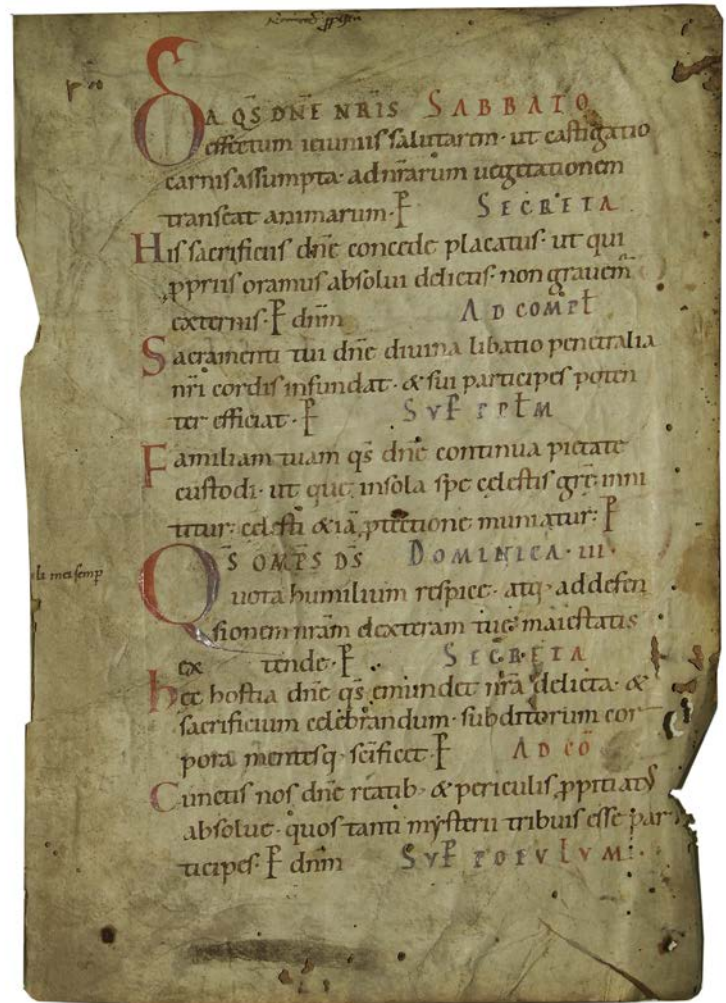 DA QS DNE NRIS SABBATO
effectum ieiuniis salutarem· ut castigatio
carnis assumpta· ad nr̄arum uegetationem
transeat animarum· P̲ SECRETA
His sacrificiis dn̄e concede placatus· ut qui
ꝓpriis oramus absolui delictis· non grauem̄
externis· P̲ dn̄m AD COMPL̄
Sacramenti tui dn̄e diuina libatio penetralia
nr̄i cordis infundat· & sui participes poten
ter efficiat· P̲ SUP̲ PPL̄M
Familiam tuam q̄s dn̄e continua pietate
custodi· ut que in sola spe celestis gr̄e inni
titur· celesti &iā ꝓtectione muniatur· P̲
QS OMPS DS DOMINICA· III·
uota humilium respice· atq· ad defen
sionem nr̄am dexteram tuę maiestatis
ex tende· P̲ SECRETA
hec hostia dn̄e q̄s emundet nr̄a delicta· &
sacrificium celebrandum· subditorum cor
pora mentesq· sc̄ificet· P̲ AD CŌ
Cunctis nos dn̄e reatib· & periculis ꝓpitiatus
absolue· quos tanti mysterii tribuis esse par
ticipes· P̲ dn̄m SUP̲ POPULUM·